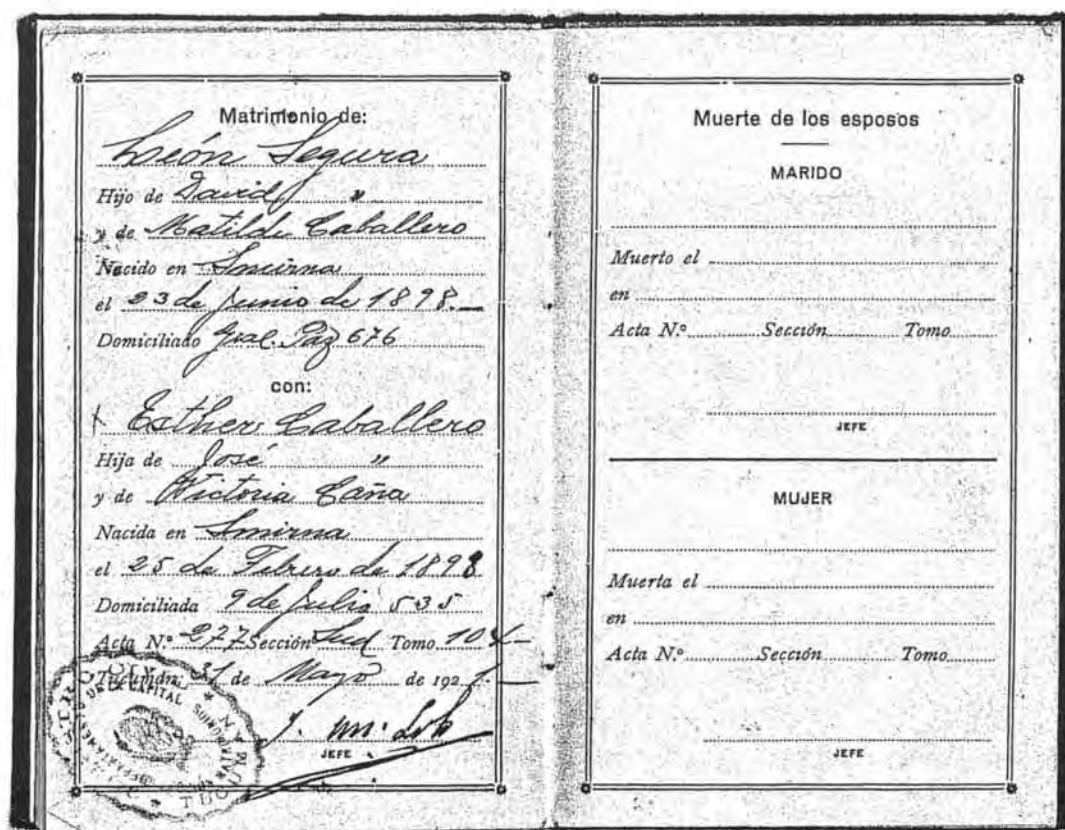 Matrimonio de:
León Segura
Hijo de David "
y de Matilde Caballero
Nacido en Smirna
el 23 de Junio de 1898.—
Domiciliado Gral. Paz 676
con:
Esther Caballero
Hija de José "
y de Victoria Caña
Nacida en Smirna
el 25 de Febrero de 1898
Domiciliada 9 de Julio 535
Acta N.º 277 Sección Sud Tomo 104—
Tucumán, 31 de Mayo de 192
JEFE
CAPITAL
Muerte de los esposos
MARIDO
Muerto el
en
Acta N.º Sección Tomo
JEFE
MUJER
Muerta el
en
Acta N.º Sección Tomo
JEFE